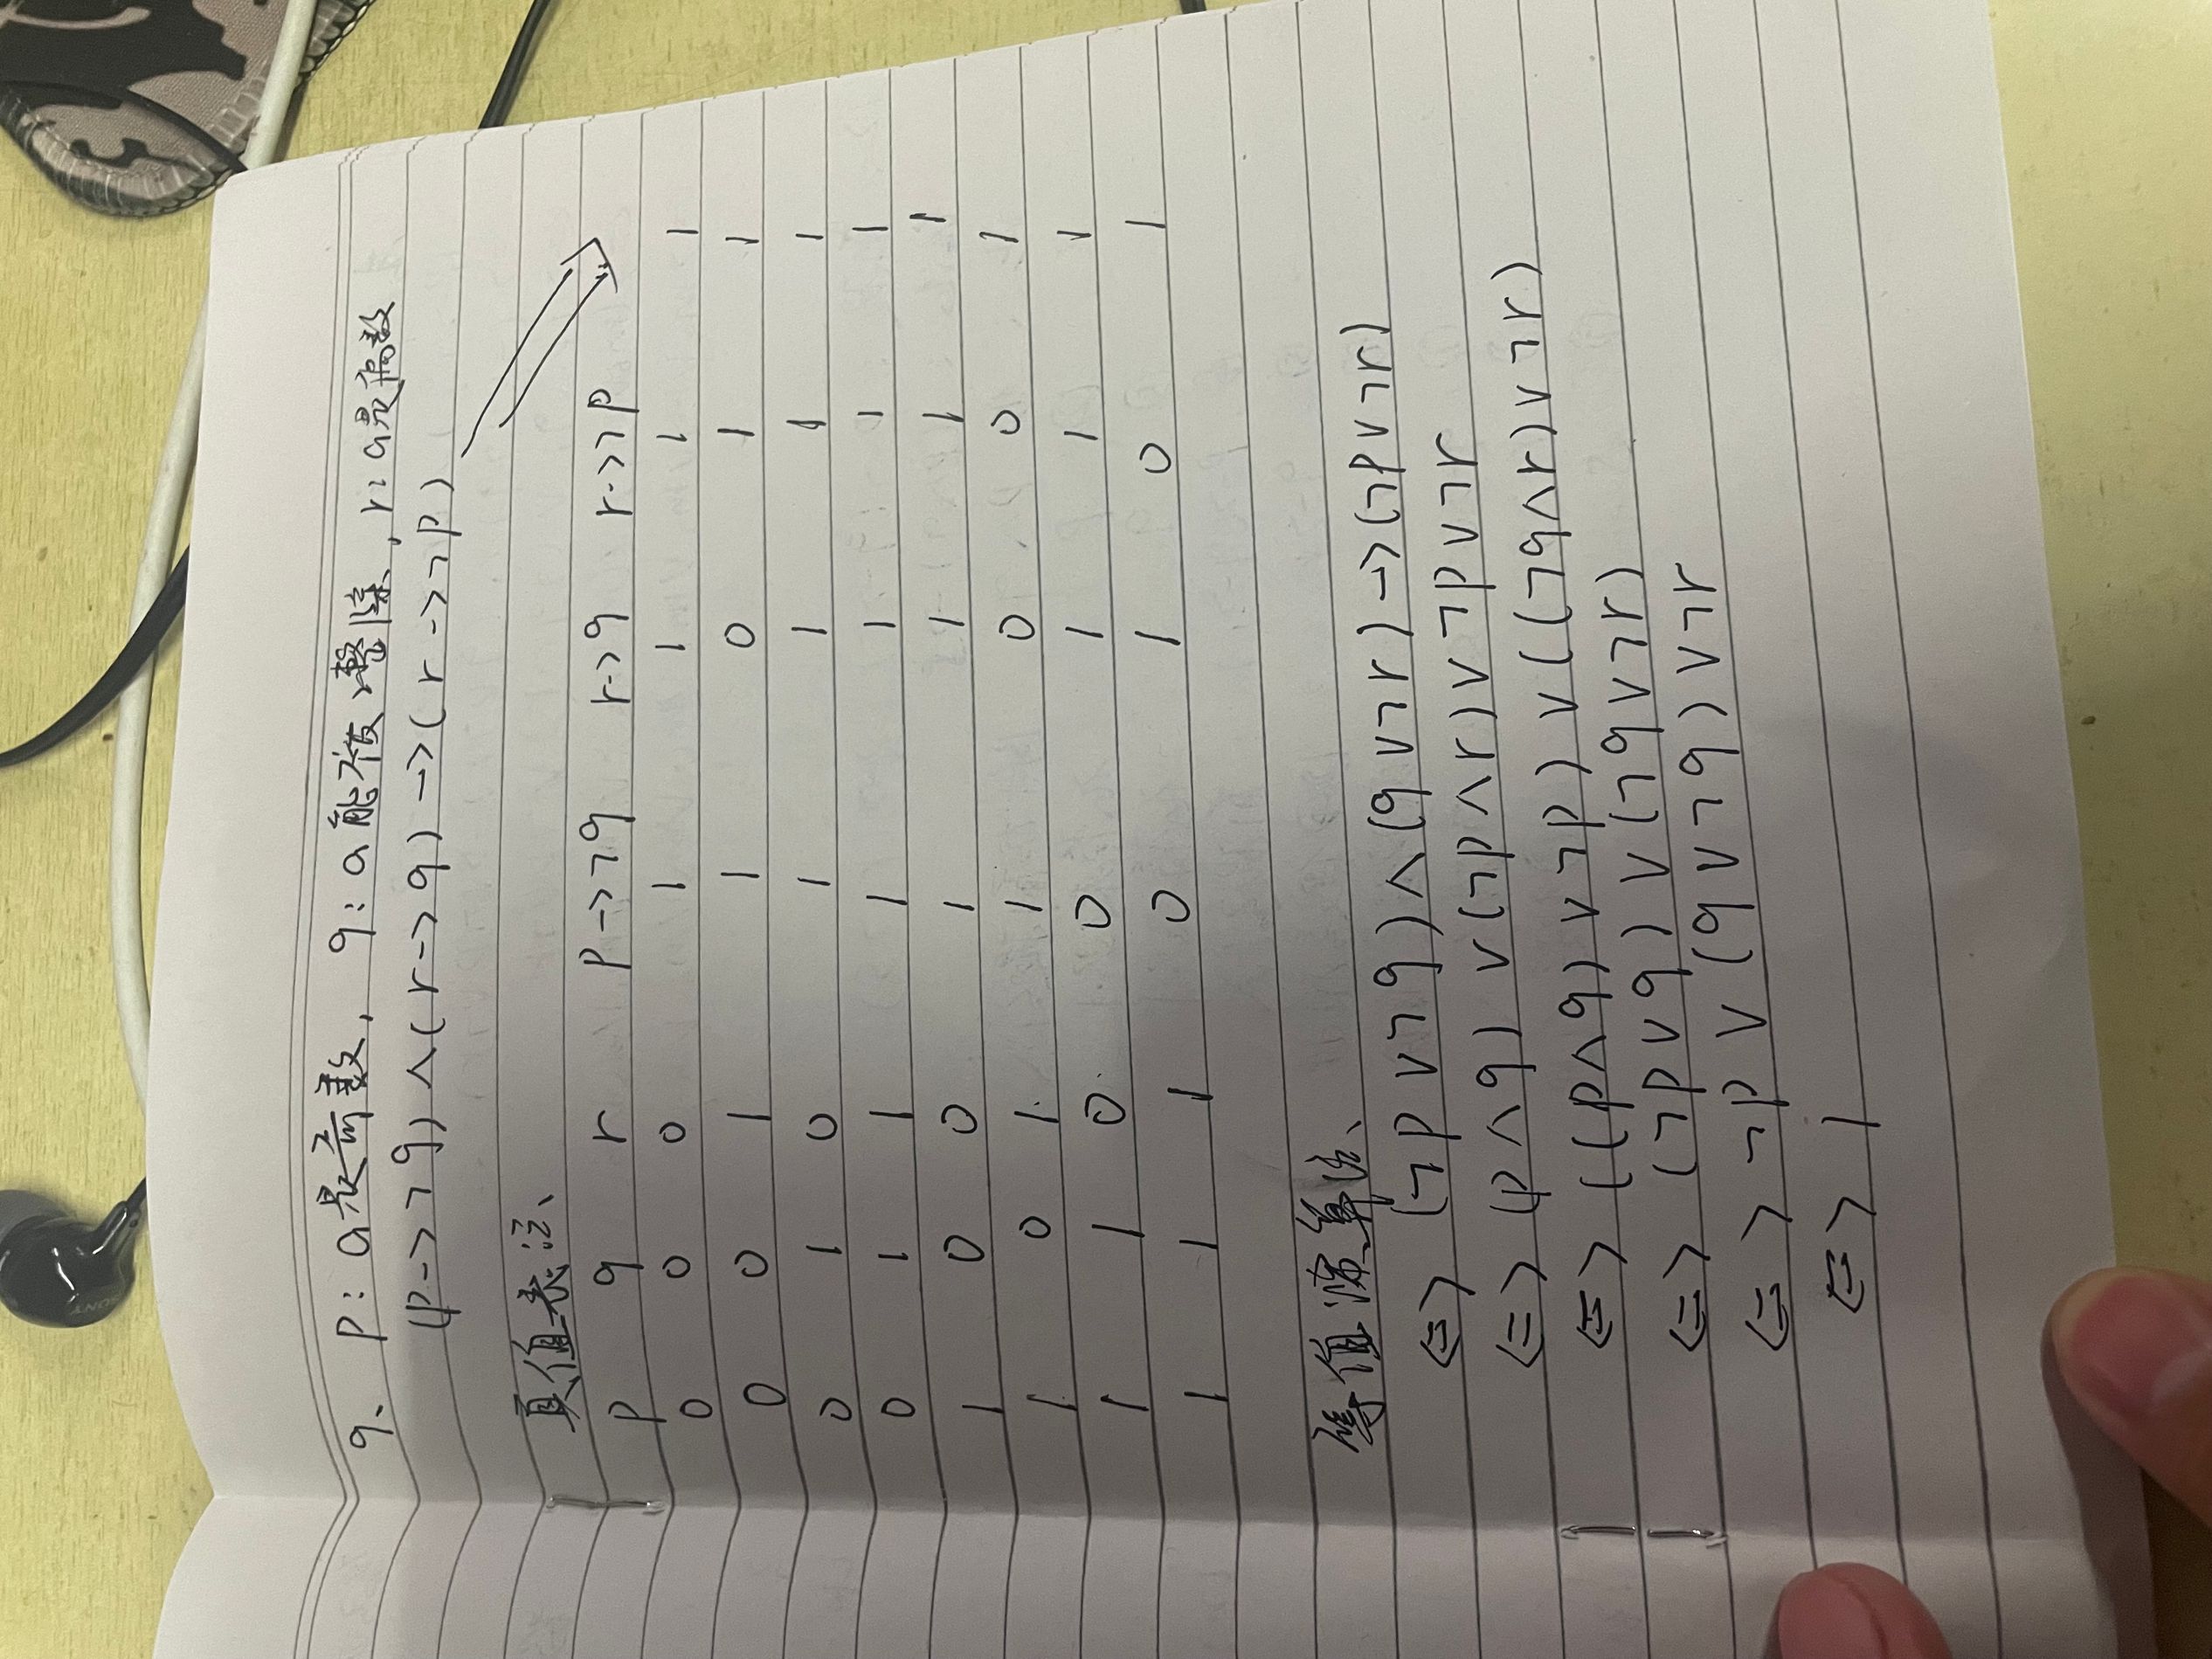 9、 p：a是奇数，q：a能被2整除，r：a是偶数
(p->¬q)∧(r->q)->(r->¬p)
真值表法、
p q r p->¬q r->q r->¬p
0 0 0 1 1 1 1
0 0 1 1 0 1 1
0 1 0 1 1 1 1
0 1 1 1 1 1 1
1 0 0 1 1 1 1
1 0 1 1 0 0 1
1 1 0 0 1 1 1
1 1 1 0 1 0 1
等值演算法、
<=> (¬p∨¬q)∧(q∨¬r)->(¬p∨¬r)
<=> (p∧q)∨(¬p∧r)∨¬p∨¬r
<=> ((p∧q)∨¬p)∨((¬q∧r)∨¬r)
<=> (¬p∨q)∨(¬q∨¬r)
<=> ¬p∨(q∨¬q)∨¬r
<=> 1